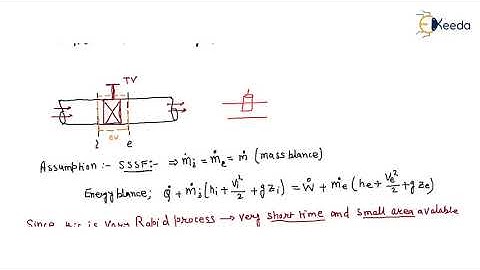 Ekeeda
TV
CV
i e
Assumption :- SSSF:- ⇒ ṁi = ṁe = ṁ (mass blance)
Energy blance; Q̇ + ṁi (hi + Vi²/2 + g zi) = Ẇ + ṁe (he + Ve²/2 + g ze)
Since is very Rapid process → very short time and small area avalable